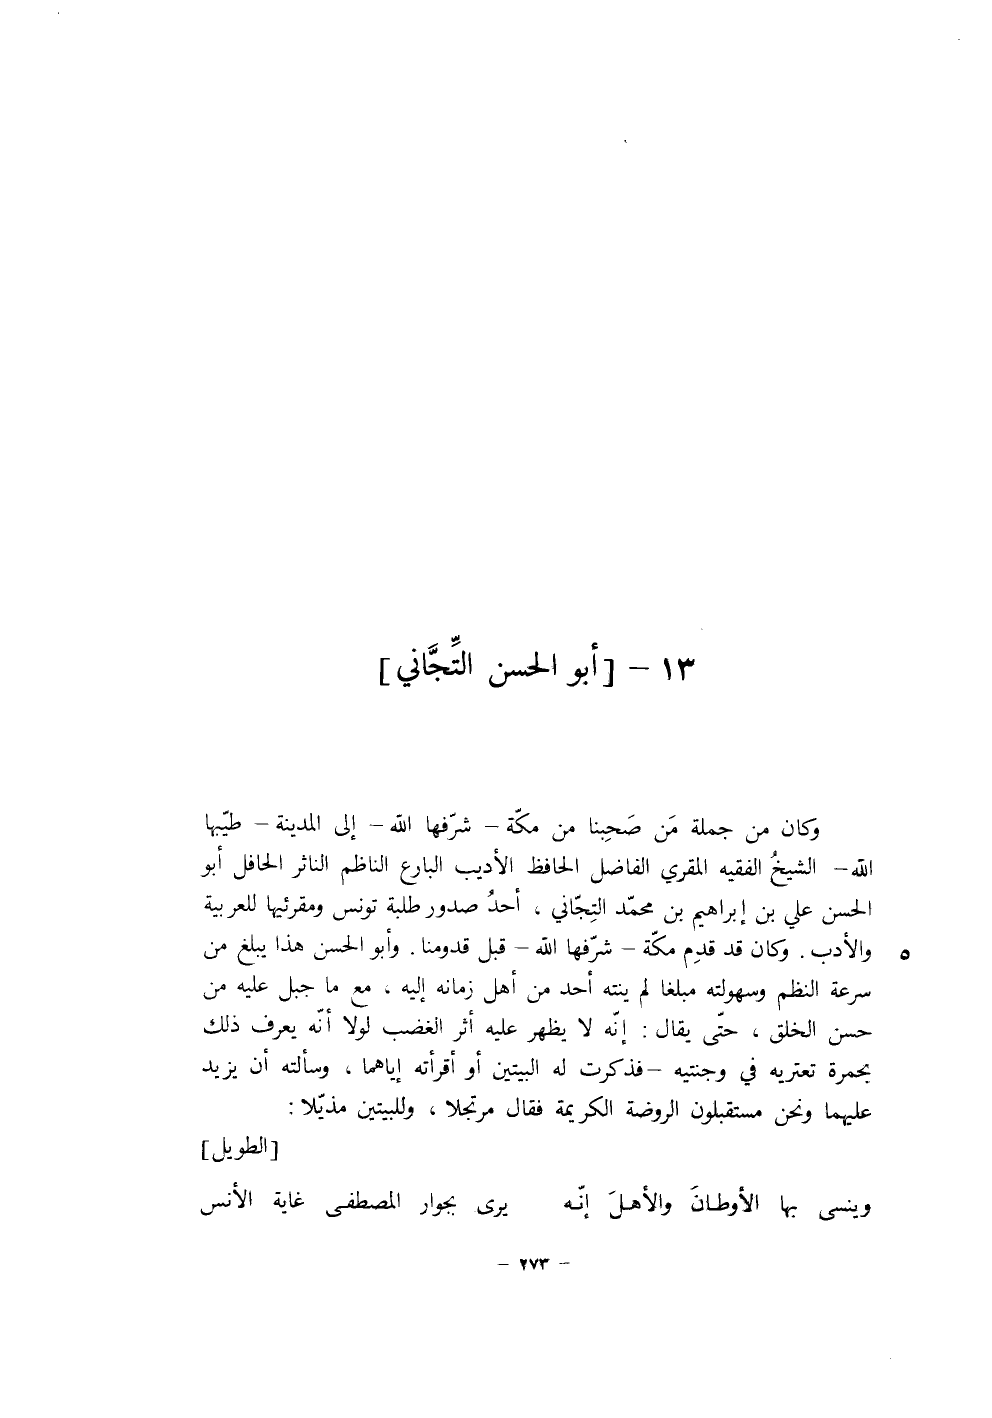 ١٣ - [أبو الحسن التِّجَّاني]
وكان من جملة مَن صَحِبنا من مكّة - شرّفها الله - إلى المدينة - طيّبها
الله - الشيخُ الفقيه المقري الفاضل الحافظ الأديب البارع الناظم الناثر الحافل أبو
الحسن علي بن إبراهيم بن محمّد التِجّاني ، أحدُ صدور طلبة تونس ومقرئيها للعربية
والأدب . وكان قد قدِم مكّة - شرّفها الله - قبل قدومنا . وأبو الحسن هذا يبلغ من ٥
سرعة النظم وسهولته مبلغا لم ينته أحد من أهل زمانه إليه ، مع ما جبل عليه من
حسن الخلق ، حتّى يقال : إنّه لا يظهر عليه أثر الغضب لولا أنّه يعرف ذلك
بحمرة تعتريه في وجنتيه - فذكرت له البيتين أو أقرأته إياهما ، وسألته أن يزيد
عليهما ونحن مستقبلون الروضة الكريمة فقال مرتجلا ، وللبيتين مذيّلا :
[الطويل]
وينسى بها الأوطانَ والأهلَ إنّه يرى بجوار المصطفى غاية الأنس
- ٢٧٣ -